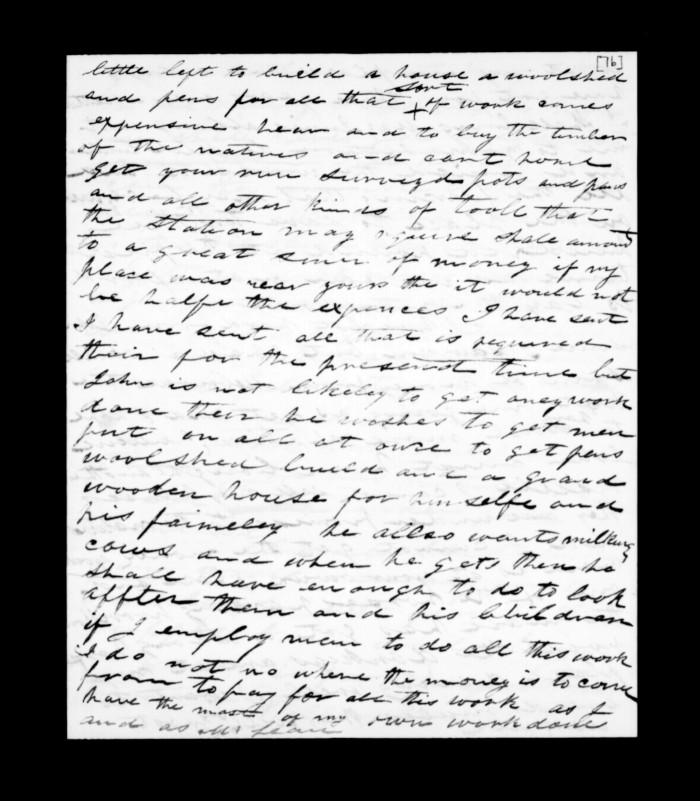 [76]
little left to build a house a woolshed
and pens for all that sort of work comes
expensive hear and to buy the timber
of the natives and cart home
get your run surveyd pots and pans
and all other kinds of tools that
the station may require shall amount
to a great sum of money if my
place was near yours the it would not
be halfe the expences I have sent
I have sent all that is required
their for the present time but
John is not likeley to get aney work
done their he wishes to get men
put on all at once to get pens
woolshed build and a grand
wooden house for himselfe and
his faimeley he allso wants milking
cows and when he gets then he
shall have enough to do to look
affter them and his children
if I employ men to do all this work
I do not no where the money is to come
from to pay for all this work as I
have the most of my own work done
and as Mr